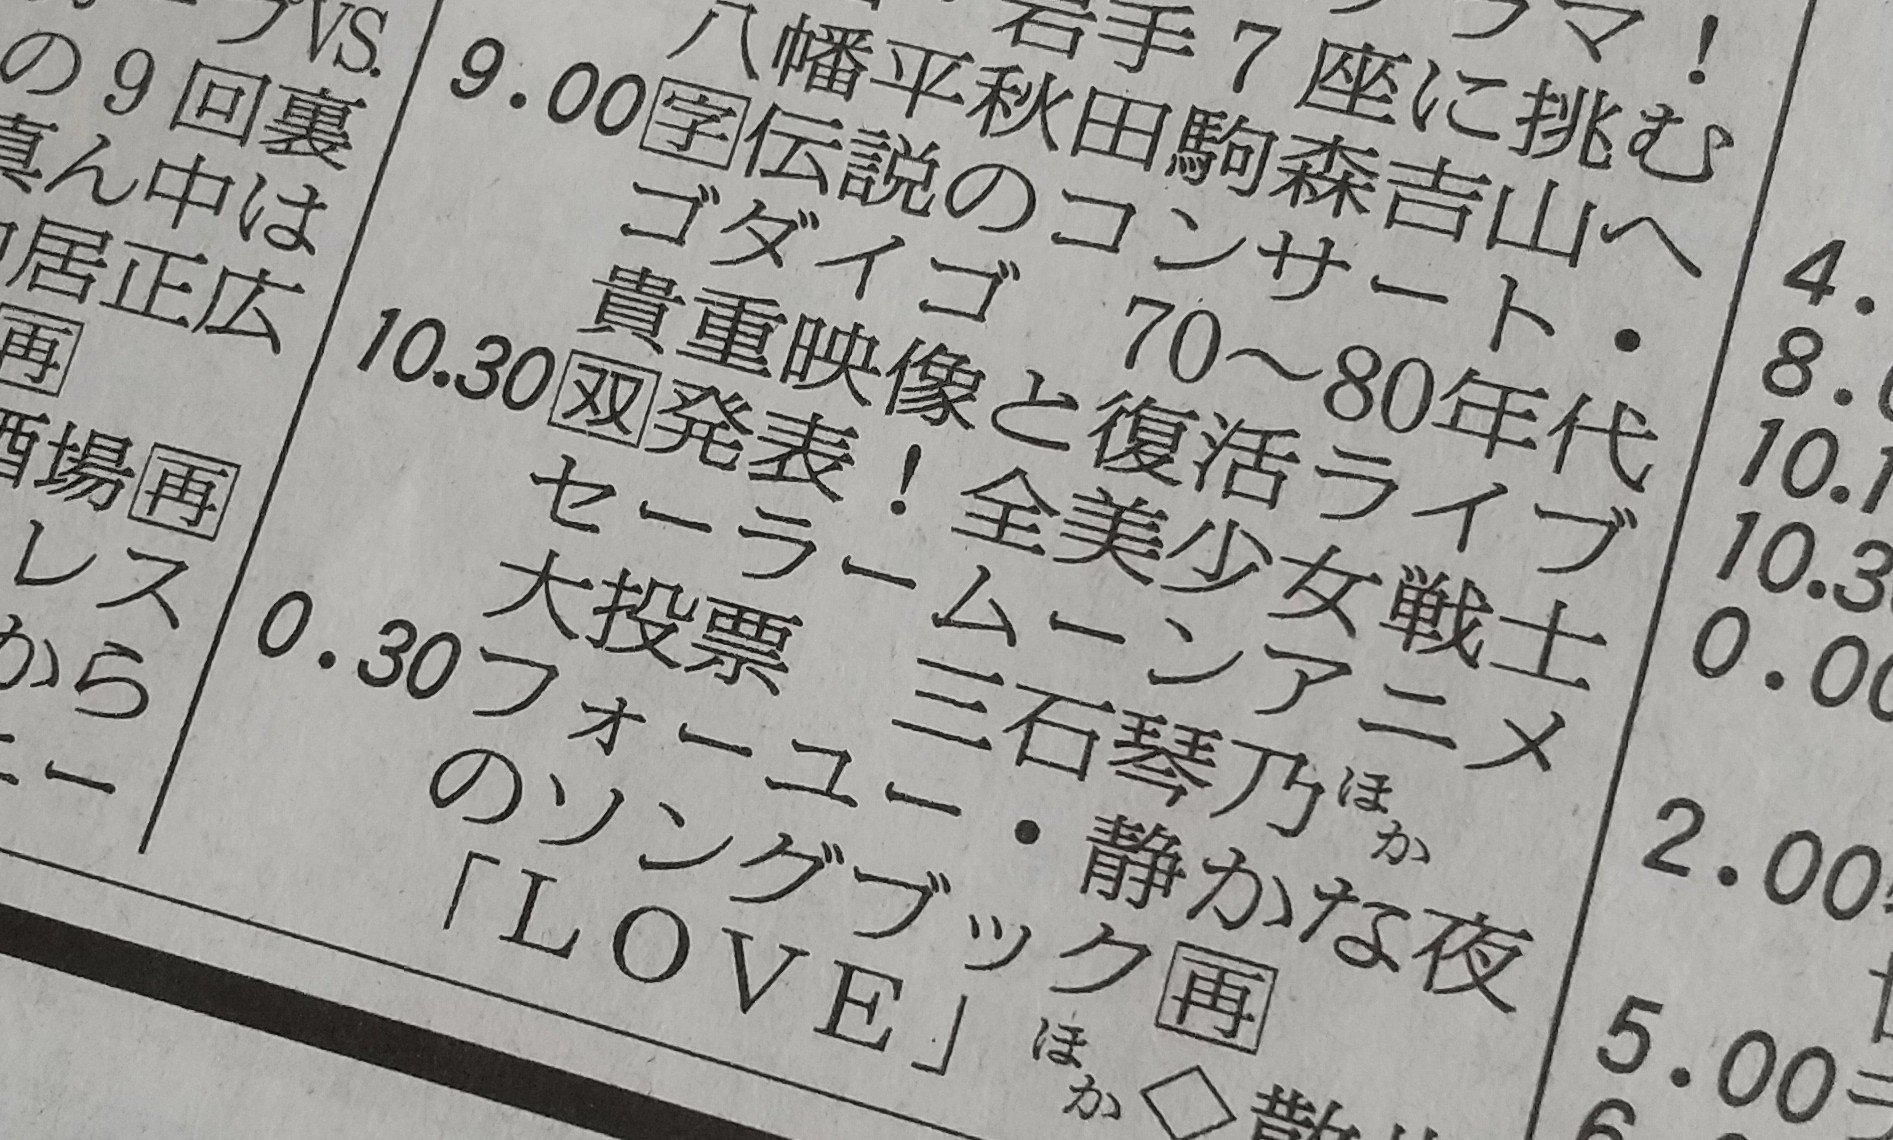 プVS.
の9回裏
真ん中は
居正広
再
酒場再
レス
から
ニー
ラマ！
岩手7座に挑む
八幡平秋田駒森吉山へ
9.00字伝説のコンサート・
ゴダイゴ 70～80年代
貴重映像と復活ライブ
10.30双発表！全美少女戦士
セーラームーンアニメ
大投票 三石琴乃ほか
0.30フォーユー・静かな夜
のソングブック再
「LOVE」ほか◇散
4.
8.0
10.1
10.3
0.00
2.00
5.00ラ
6